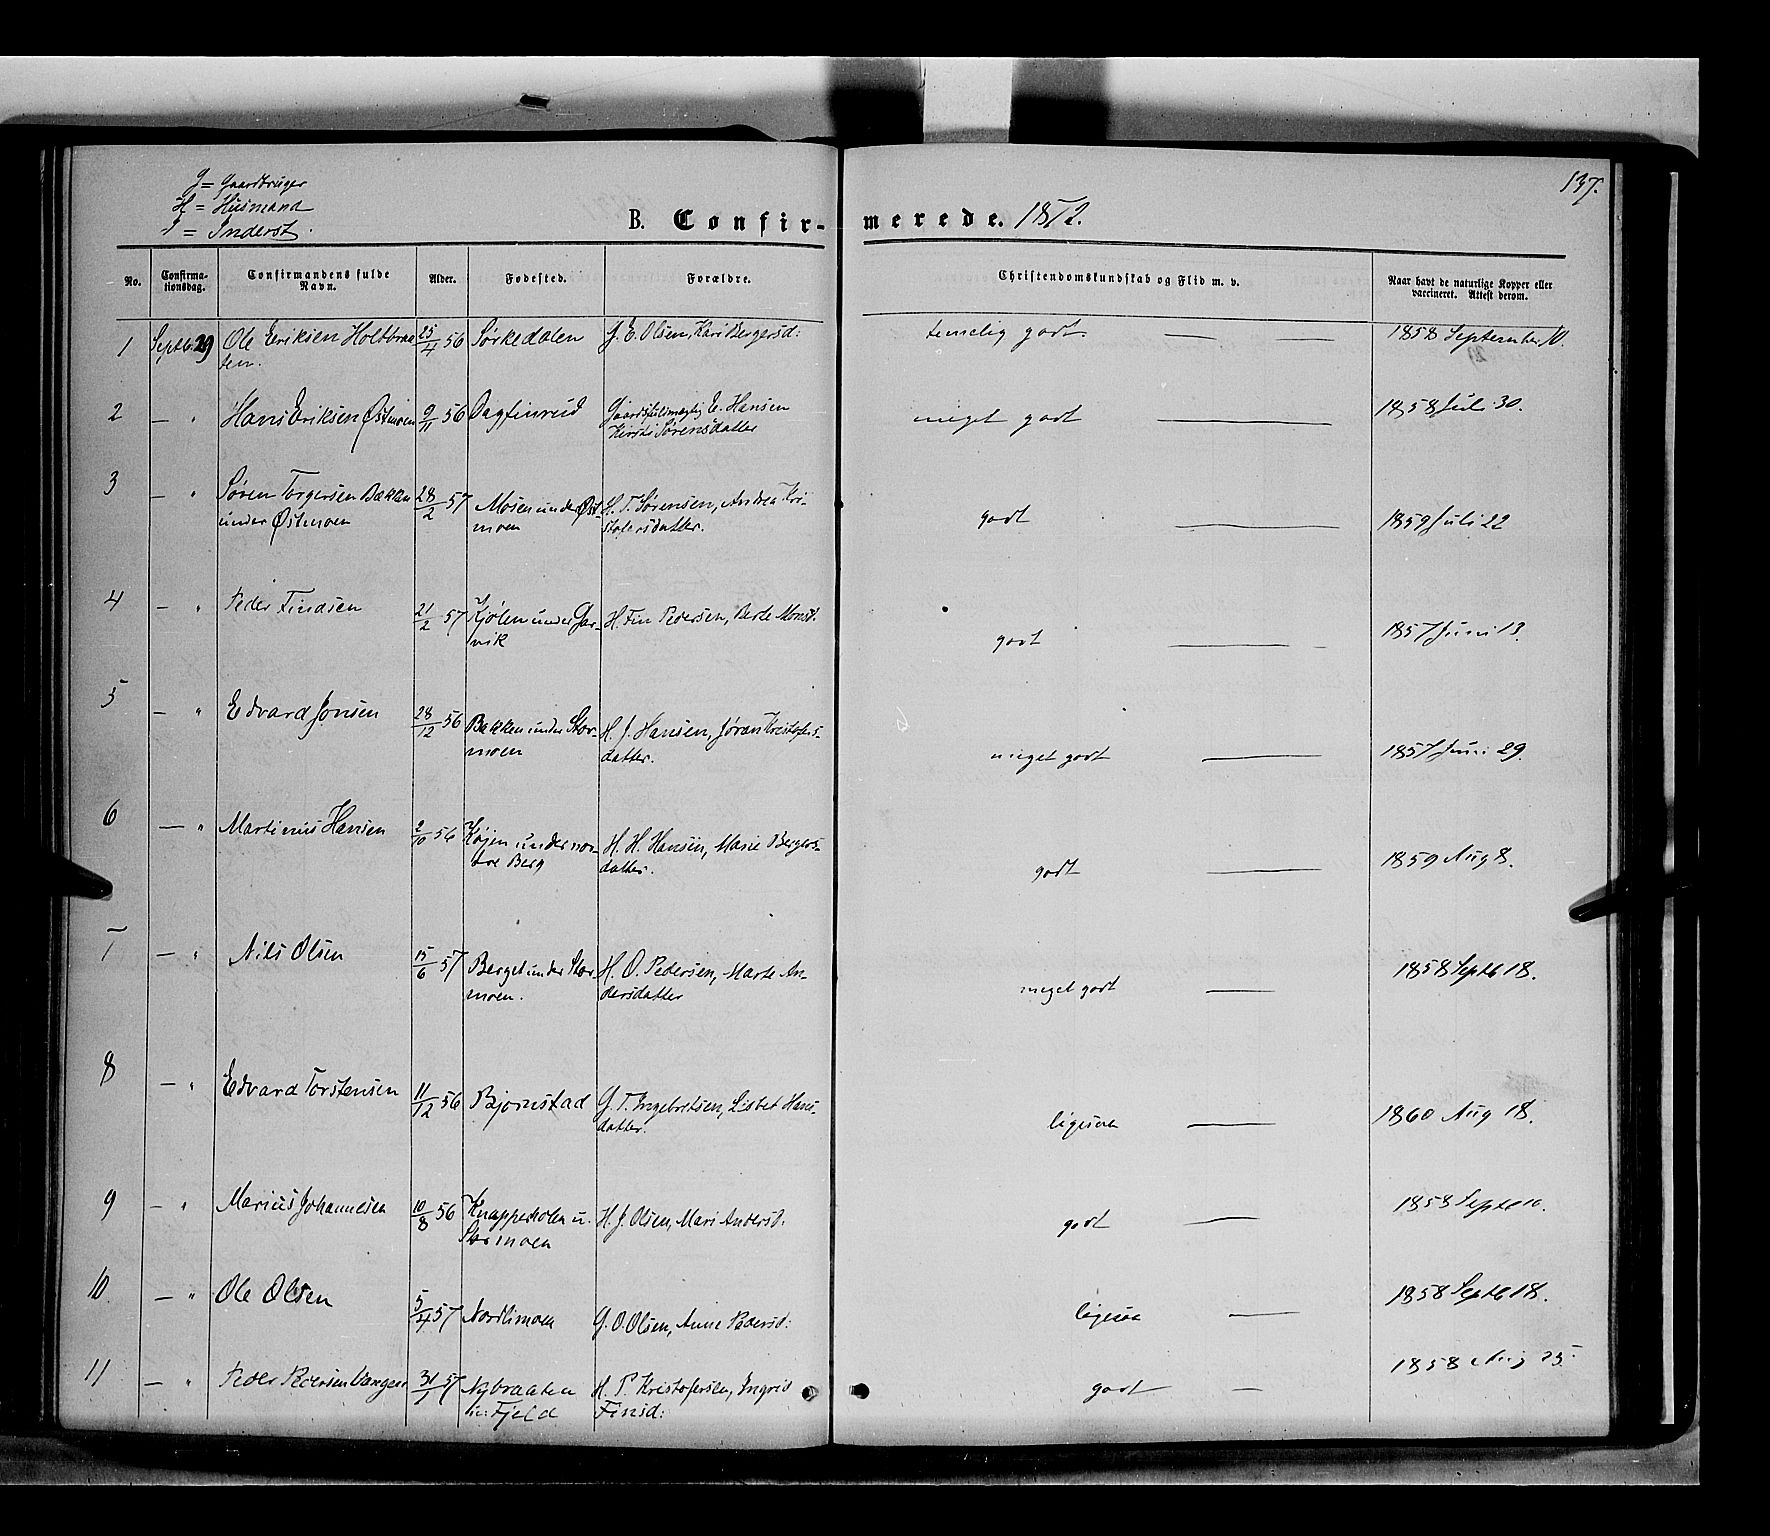 G = Gaardbruger
H = Husmand
I = Inderst.
137.
B. Confirmerede. 1872.
No. Confirmationsdag. Confirmandens fulde Navn. Alder. Fødested. Forældre. Christendomskundskab og Flid m. v. Naar havt de naturlige Kopper eller vaccineret. Attest derom.
1 Septbr 29 Ole Eriksen Holtbraaten. 25/4 56 Sørkedalen G. E. Olsen, Kari Bergersd: temelig godt — — 1858 September 10.
2 — " Hans Eriksen Østmoen 9/11 56 Dagfinrud Gaardsfuldmægtig E. Hansen
Kirsti Sørensdatter meget godt — 1858 Juli 30.
3 — " Søren Torgersen Bakken 28/2 57 Mosen under Øst- H. T. Sørensen, Andrea Kri-
under Østmoen moen stofersdatter. godt — 1859 Juli 22
4 — " Peder Findsen 21/2 57 Kjølen under Gar- H. Fin Pedersen, Berte Monsd.
vik godt — 1857 Juni 13.
5 — " Edvard Jonsen 28/12 56 Bakken under Stor- H. J. Hansen, Jøran Kristofers-
moen datter. meget godt — 1857 Juni 29.
6 — " Martinius Hansen 2/10 56 Køjen under nor- H. H. Hansen, Marie Bergers-
dre Berg datter. godt — 1859 Aug 8.
7 — " Nils Olsen 15/6 57 Berget under Stor- H. O. Pedersen, Marte An-
moen. dersdatter meget godt — 1858 Septb 18.
8 — " Edvard Torstensen 11/12 56 Bjørnstad G. T. Ingebretsen, Lisbet Hans-
datter. ligesaa — 1860 Aug 18.
9 — " Marius Johannesen 10/8 56 Knappeholen u. H. J. Olsen, Mari Andersd.
Stormoen godt — 1858 Septb 10.
10 — " Ole Olsen 5/4 57 Nordlimoen G. O. Olsen, Anne Pedersd: ligesaa — 1858 Septb 18.
11 — " Peder Pedersen 57 Nybraaten H. P. Kristofersen, Ingrid
u: Fjeld Finsd: godt — 1858 Aug 25.